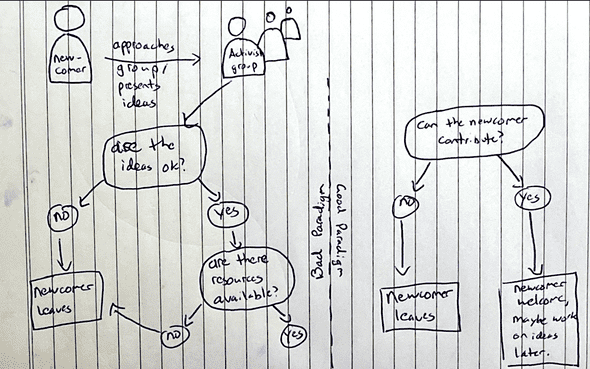 New-
comer
approaches
group,
presents
ideas
Activist
group
are the
ideas ok?
no
yes
newcomer
leaves
are there
resources
available?
no
yes
Bad Paradigm
Good Paradigm
Can the newcomer
contribute?
no
yes
newcomer
leaves
newcomer
welcome,
maybe work
on ideas
later.